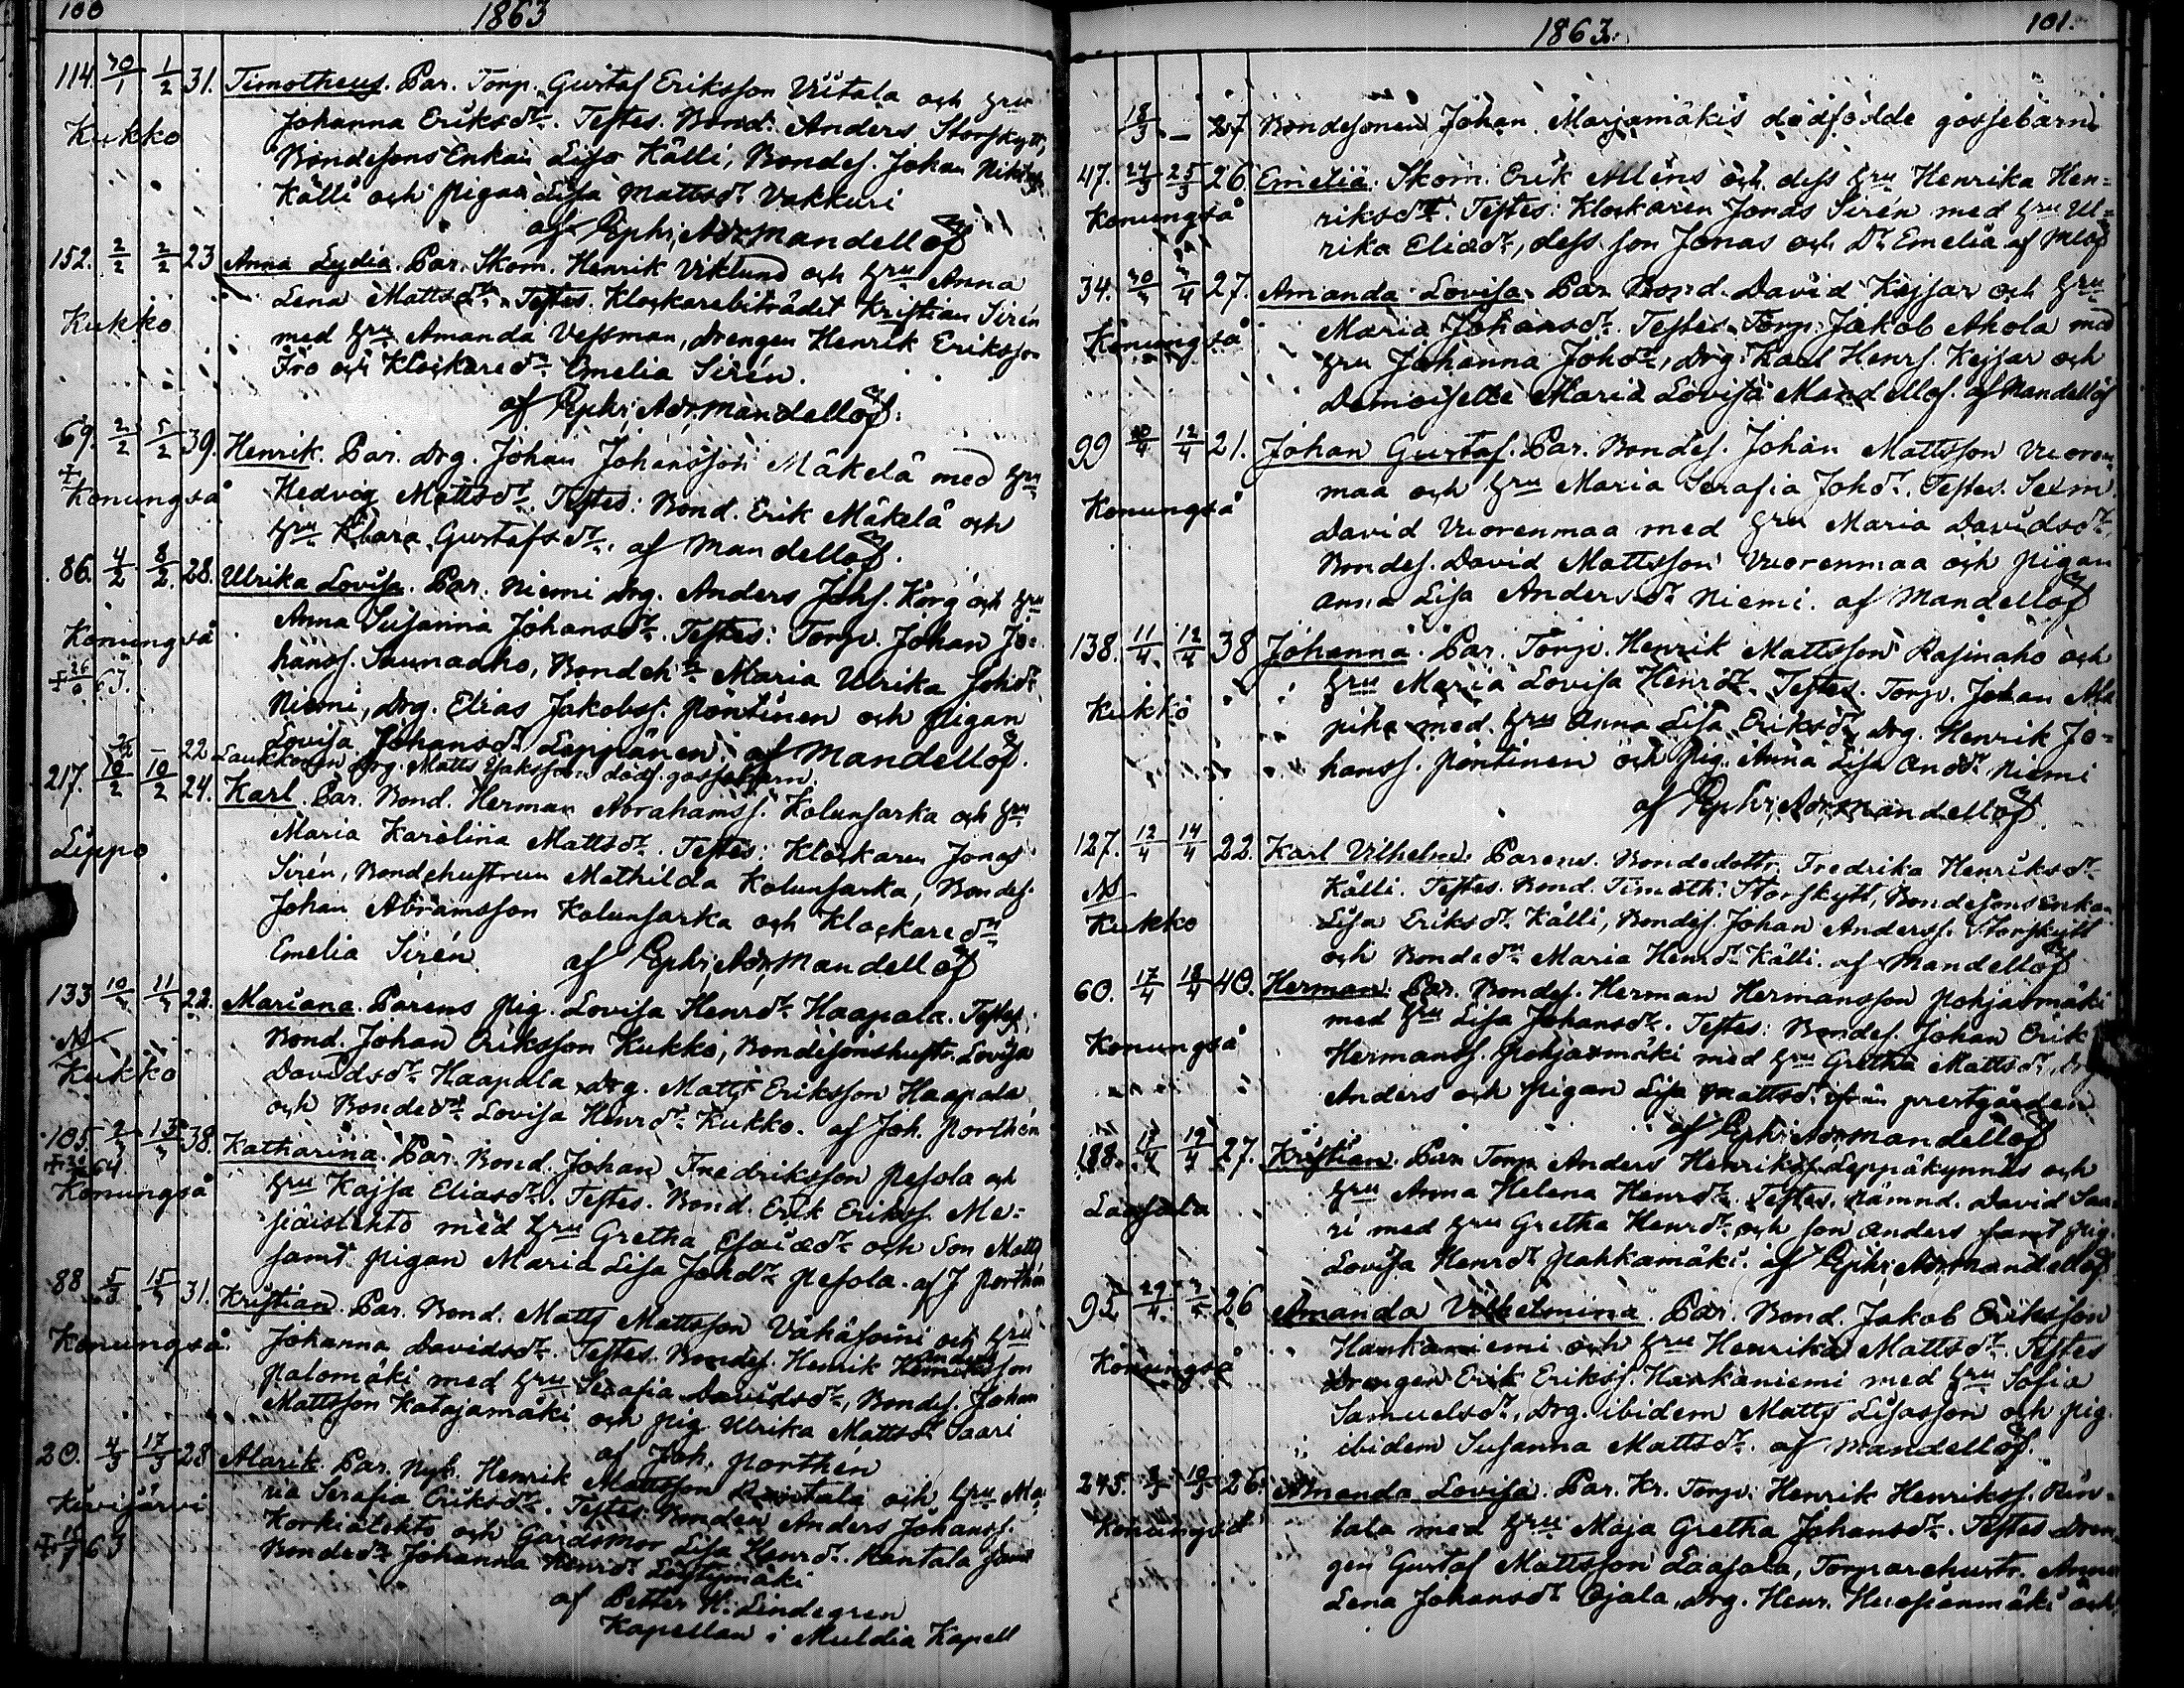 100
1863
114. 30/1 1/2 31. Timotheus. Par. Torp. Gustaf Eriksson Viitala och hru
Johanna Eriksdr. Testes. Bond. Anders Storskytt,
Kukko
Bondesons Enkan Lisa Källi, Bondes. Johan
Källi och pigan Lisa Mattsdr Vakkuri
af Mandellöf
152. 2/2 2/2 23 Anna Lydia. Par. Skom. Henrik Viklund och hru Anna
Lena Mattsdr. Testes. Klockarebiträdet Kristian Sirén
Kukko
med hru Amanda Vessman, drengen Henrik Eriksson
Fro och Klockaredr Emelia Sirén.
af Mandellöf.
69. 2/2 5/2 39. Henrik. Par. Drg. Johan Johansson Mäkelä med hru
Konungså
Hedvig Mattsdr. Testes: Bond. Erik Mäkelä och
hru Klara Gustafsdr. af Mandellöf.
86. 4/2 8/2 28. Ulrika Lovisa. Par. Niemi drg. Anders Johs. Korg och hru
Anna Susanna Johansdr. Testes: Torp. Johan Jo=
Konungså
hanss. Saunaaho, Bondeh. Maria Ulrika Johdr
63.
Niemi, drg. Elias Jakobss. Pöntinen och pigan
Lovisa Johansdr Leppänen. af Mandellöf.
22 Laukkonen drg. Matts Isakssons dödf. gossebarn.
217. 10/2 10/2 24. Karl. Par. Bond. Herman Abrahamss. Kolunsarka och hru
Maria Karolina Mattsdr. Testes: Klockaren Jonas
Lippo
Sirén, Bondehustrun Mathilda Kolunsarka, Bondes.
Johan Abramsson Kolunsarka och Klockaredr
Emelia Sirén. af Mandellöf
133 22. Mariana. Parens pig. Lovisa Henrdr Haapala. Testes.
Bond. Johan Eriksson Kukko, Bondesonshustr. Lovisa
Kukko
Davidsdr Haapala, drg. Matts Eriksson Haapala
och Bondedr Lovisa Henrdr Kukko. af Joh. Porthén
105. 38. Katharina. Par. Bond. Johan Fredriksson Pesola och
Konungså
hru Kajsa Eliasdr. Testes. Bond. Erik Erikss. Me=
siäislehto med hru Gretha Esaiædr och Son Matts
samt pigan Maria Lisa Johdr Pesola. af J Porthén
88 31. Kristian. Par. Bond. Matts Mattsson Vähäsoini och hru
Johanna Davidsdr. Testes. Bondes. Henrik Henriksson
Konungså
Palomäki med hru Serafia Davidsdr, Bondes. Johan
Mattsson Katajamäki och pig. Ulrika Mattsdr Saari
af Joh. Porthén
20. 4/3 17/3 28 Alarik. Par. Nyb. Henrik Mattsson Rantala och hru Ma
ria Serafia Eriksdr. Testes: Bonden Anders Johanss.
Kivijärvi
Korkialehto och Gardsmor Lisa Henrdr Rantala samt
63
Bondedr Johanna Henrdr Löytymäki
af Petter H. Lindegren
Kapellan i Muldia Kapell
1863.
101.
18/3 — 27 Bondesonen Johan Marjamäkis dödfödde gossebarn.
47. 24/3 25/3 26. Emelia. Skom. Erik Alléns och dess hru Henrika Hen=
Konungså
riksdr. Testes: Klockaren Jonas Sirén med hru Ul=
rika Eliædr, dess son Jonas och Dr Emelia af Mlöf
34. 27. Amanda Lovisa. Par. Bond. David Kejsar och hru
Maria Johansdr. Testes. Torp. Jakob Ahola med
Konungså
hru Johanna Johdr, drg. Karl Henrs. Kejsar och
Demoiselle Maria Lovisa Mandellöf. af Mandellöf
99 12/4 21. Johan Gustaf. Par. Bondes. Johan Mattsson Vuoren
maa och hru Maria Serafia Johdr. Testes. Sexm.
Konungså
David Vuorenmaa med hru Maria Davidsdr,
Bondes. David Mattsson Vuorenmaa och pigan
Anna Lisa Andersdr Niemi. af Mandellöf
138. 11/4 12/4 38 Johanna. Par. Torp. Henrik Mattsson Rasinaho och
hru Maria Lovisa Henrdr. Testes. Torp. Johan
Kukko
piha med hru Anna Lisa Eriksdr, drg. Henrik Jo=
hanss. Pöntinen och pig. Anna Lisa Andr Niemi
af Mandellöf.
127. 12/4 14/4 22. Karl Vilhelm. Parens. Bondedottr. Fredrika Henriksdr
Källi. Testes. Bond. Timoth. Storskytt, Bondesons enkan
Kukko
Lisa Eriksdr Källi, Bondes. Johan Anderss. Storskytt
och Bondedr Maria Henrdr Källi. af Mandellöf
60. 17/4 18/4 40. Herman. Par. Bondes. Herman Hermansson Pohjasmäki
med hru Lisa Johansdr. Testes: Bondes. Johan Erik
Konungså
Hermanss. Pohjasmäki med hru Gretha Mattsdr,
Anders och pigan Lisa Mattsdr ifrån prestgården
af Mandellöf
188. 17/4 19/4 27. Kristian. Par. Torp. Anders Henrikss. Leppäkynnäs och
hru Anna Helena Henrdr. Testes. Nämnd. David Saa
Laasala
ri med hru Gretha Henrdr och son Anders samt pig.
Lovisa Henrdr Pakkamäki. af Mandellöf
95. 26 Amanda Vilhelmina. Par. Bond. Jakob Eriksson
Hankaniemi och hru Henrika Mattsdr. Testes
Konungså
Drengen Erik Erikss. Hankaniemi med hru Sofia
Samuelsdr, drg. ibidem Matts Lisasson och pig.
ibidem Susanna Mattsdr. af Mandellöf.
245. 26. Amanda Lovisa. Par. Kr. Torp. Henrik Henrikss. Rin=
Konungså
tala med hru Maja Gretha Johansdr. Testes Dren
gen Gustaf Mattsson Laasala, Torparehustr. Anna
Lena Johansdr Ojala, drg. Henr. Huosianmäki och